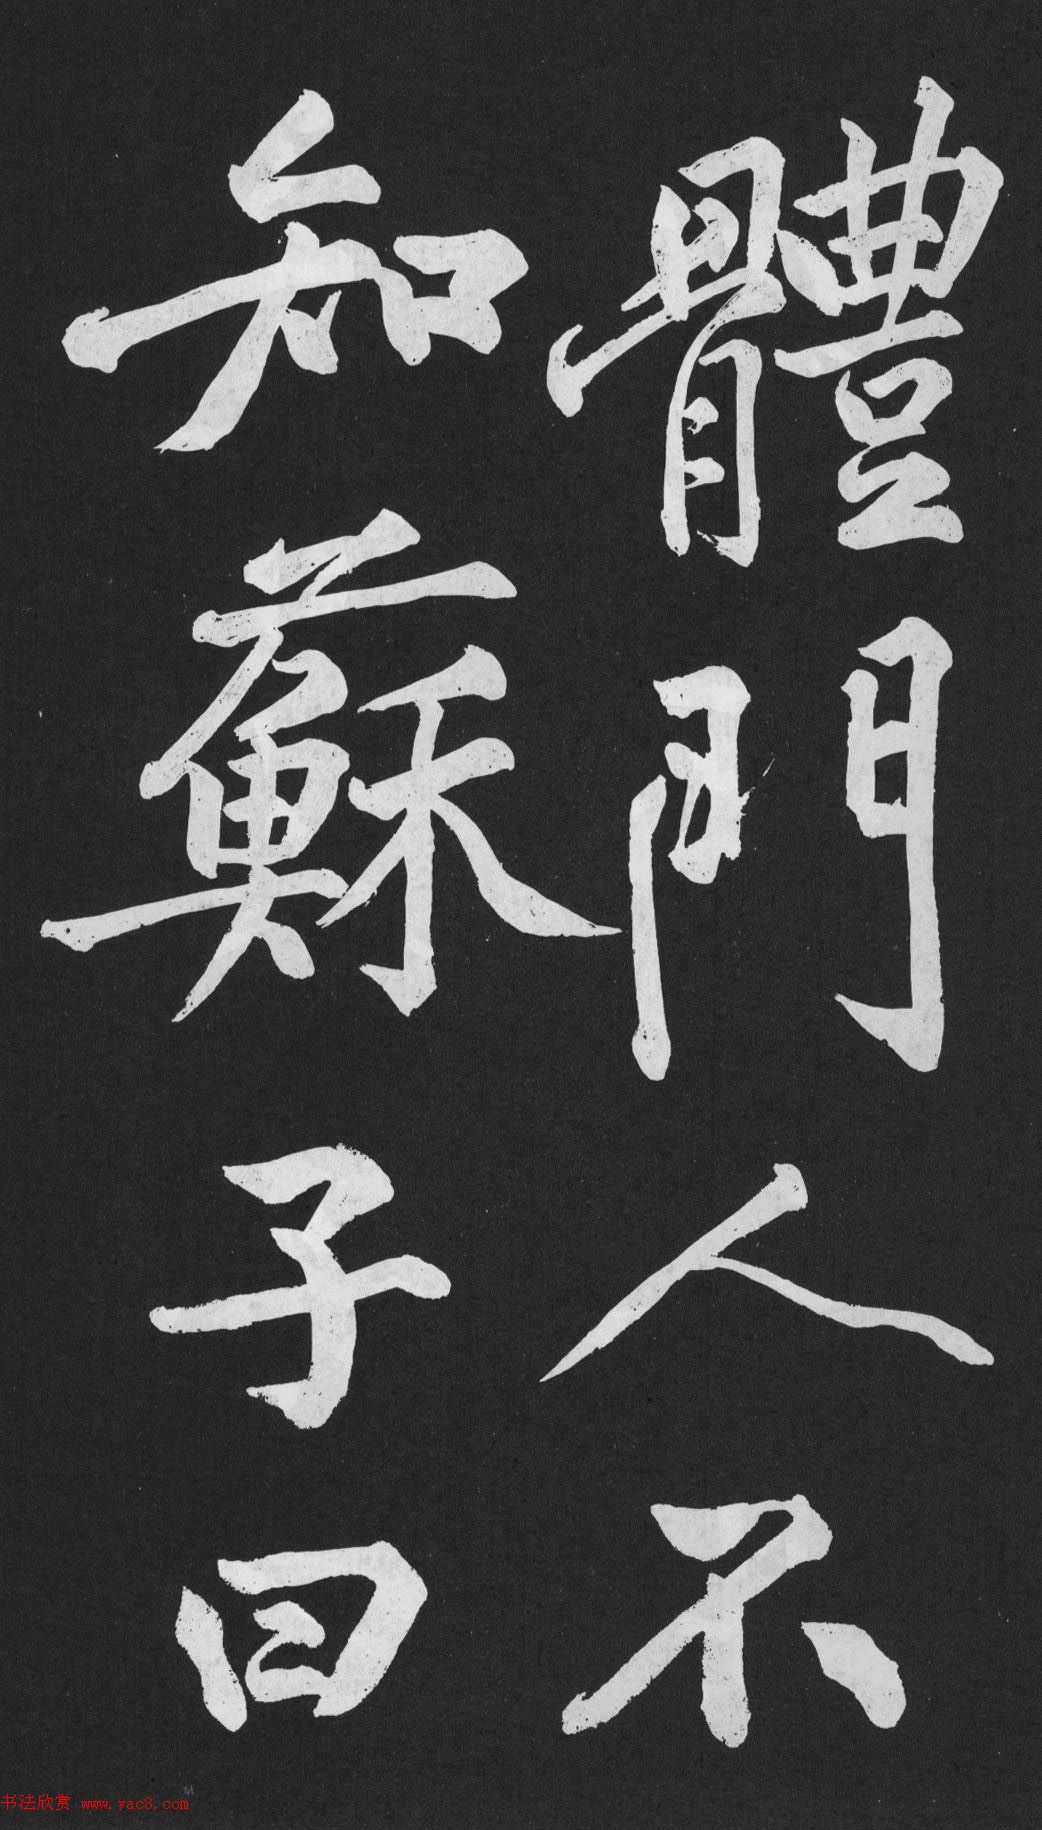 體門人不
知蘇子曰
书法欣赏 www.yac8.com